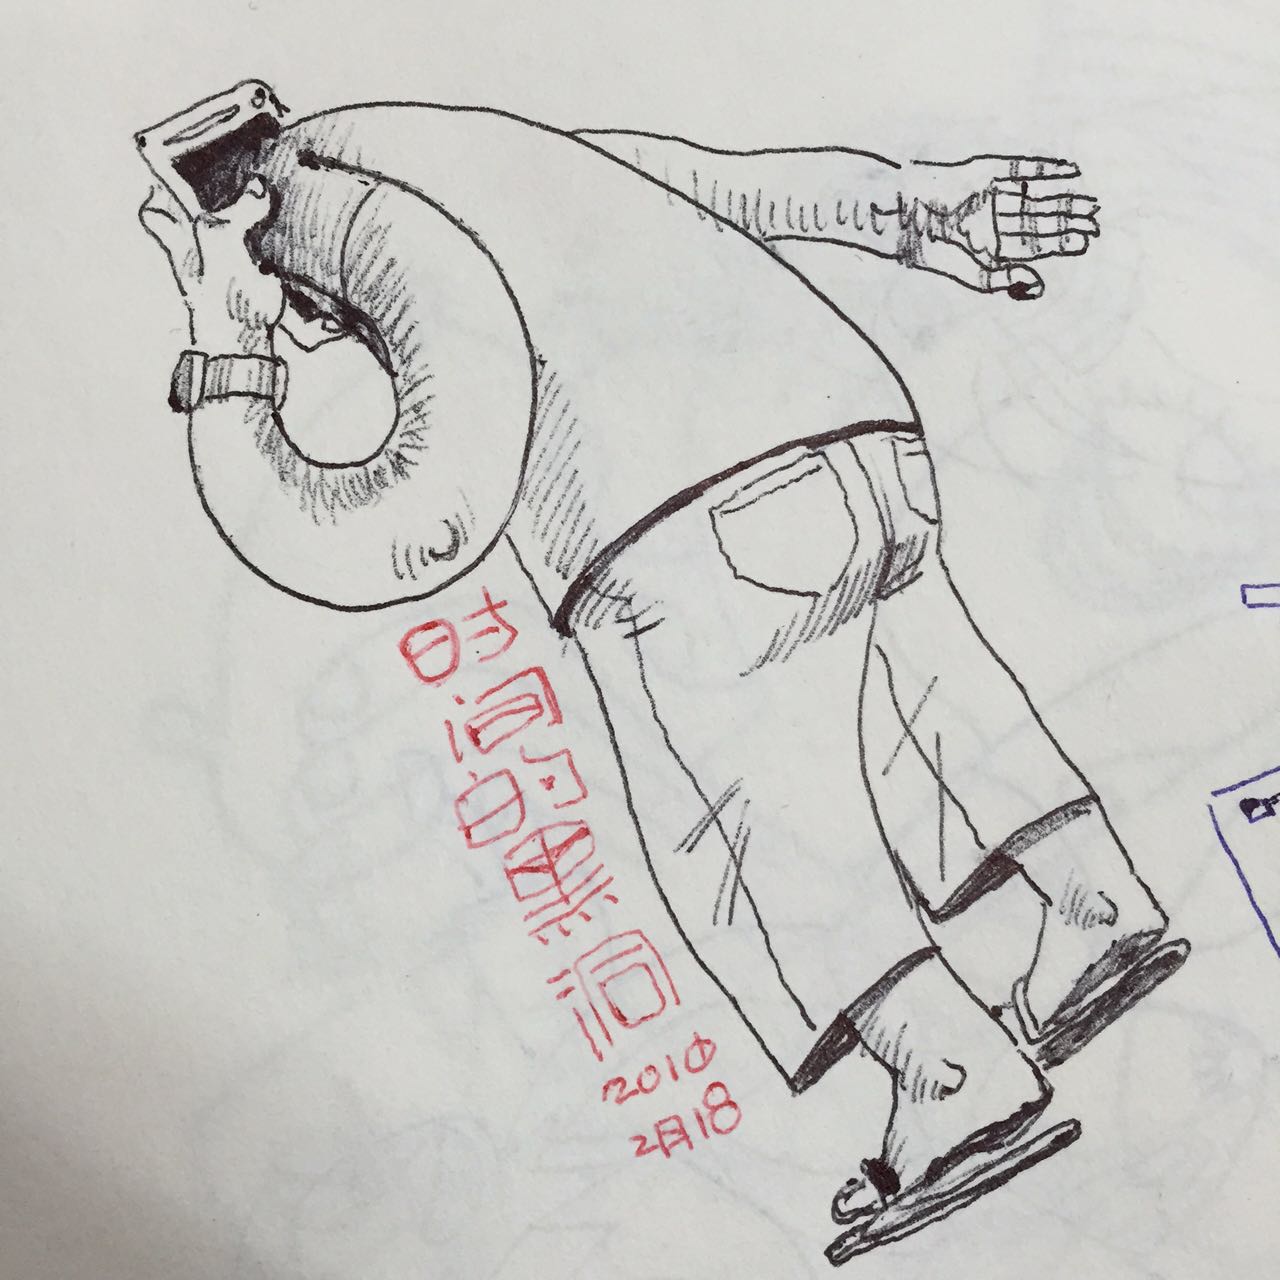 时间的黑洞
2010
2月18